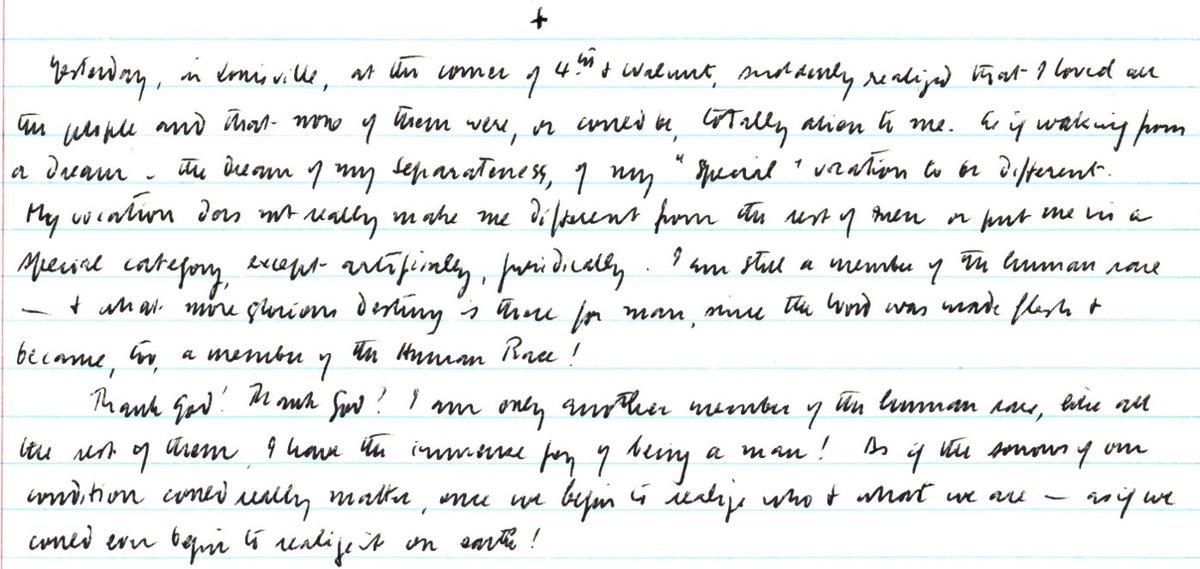 +
Yesterday, in Louisville, at the corner of 4th & Walnut, suddenly realized that I loved all
the people and that none of them were, or could be, totally alien to me. As if waking from
a dream – the dream of my separateness, of my "special" vocation to be different.
My vocation does not really make me different from the rest of men or put me in a
special category, except artificially, juridically. I am still a member of the human race
— & what more glorious destiny is there for man, since the Word was made flesh &
became, too, a member of the Human Race!
Thank God! Thank God! I am only another member of the human race, like all
the rest of them. I have the immense joy of being a man! As if the sorrows of our
condition could really matter, once we begin to realize who & what we are — as if we
could ever begin to realize it on earth!